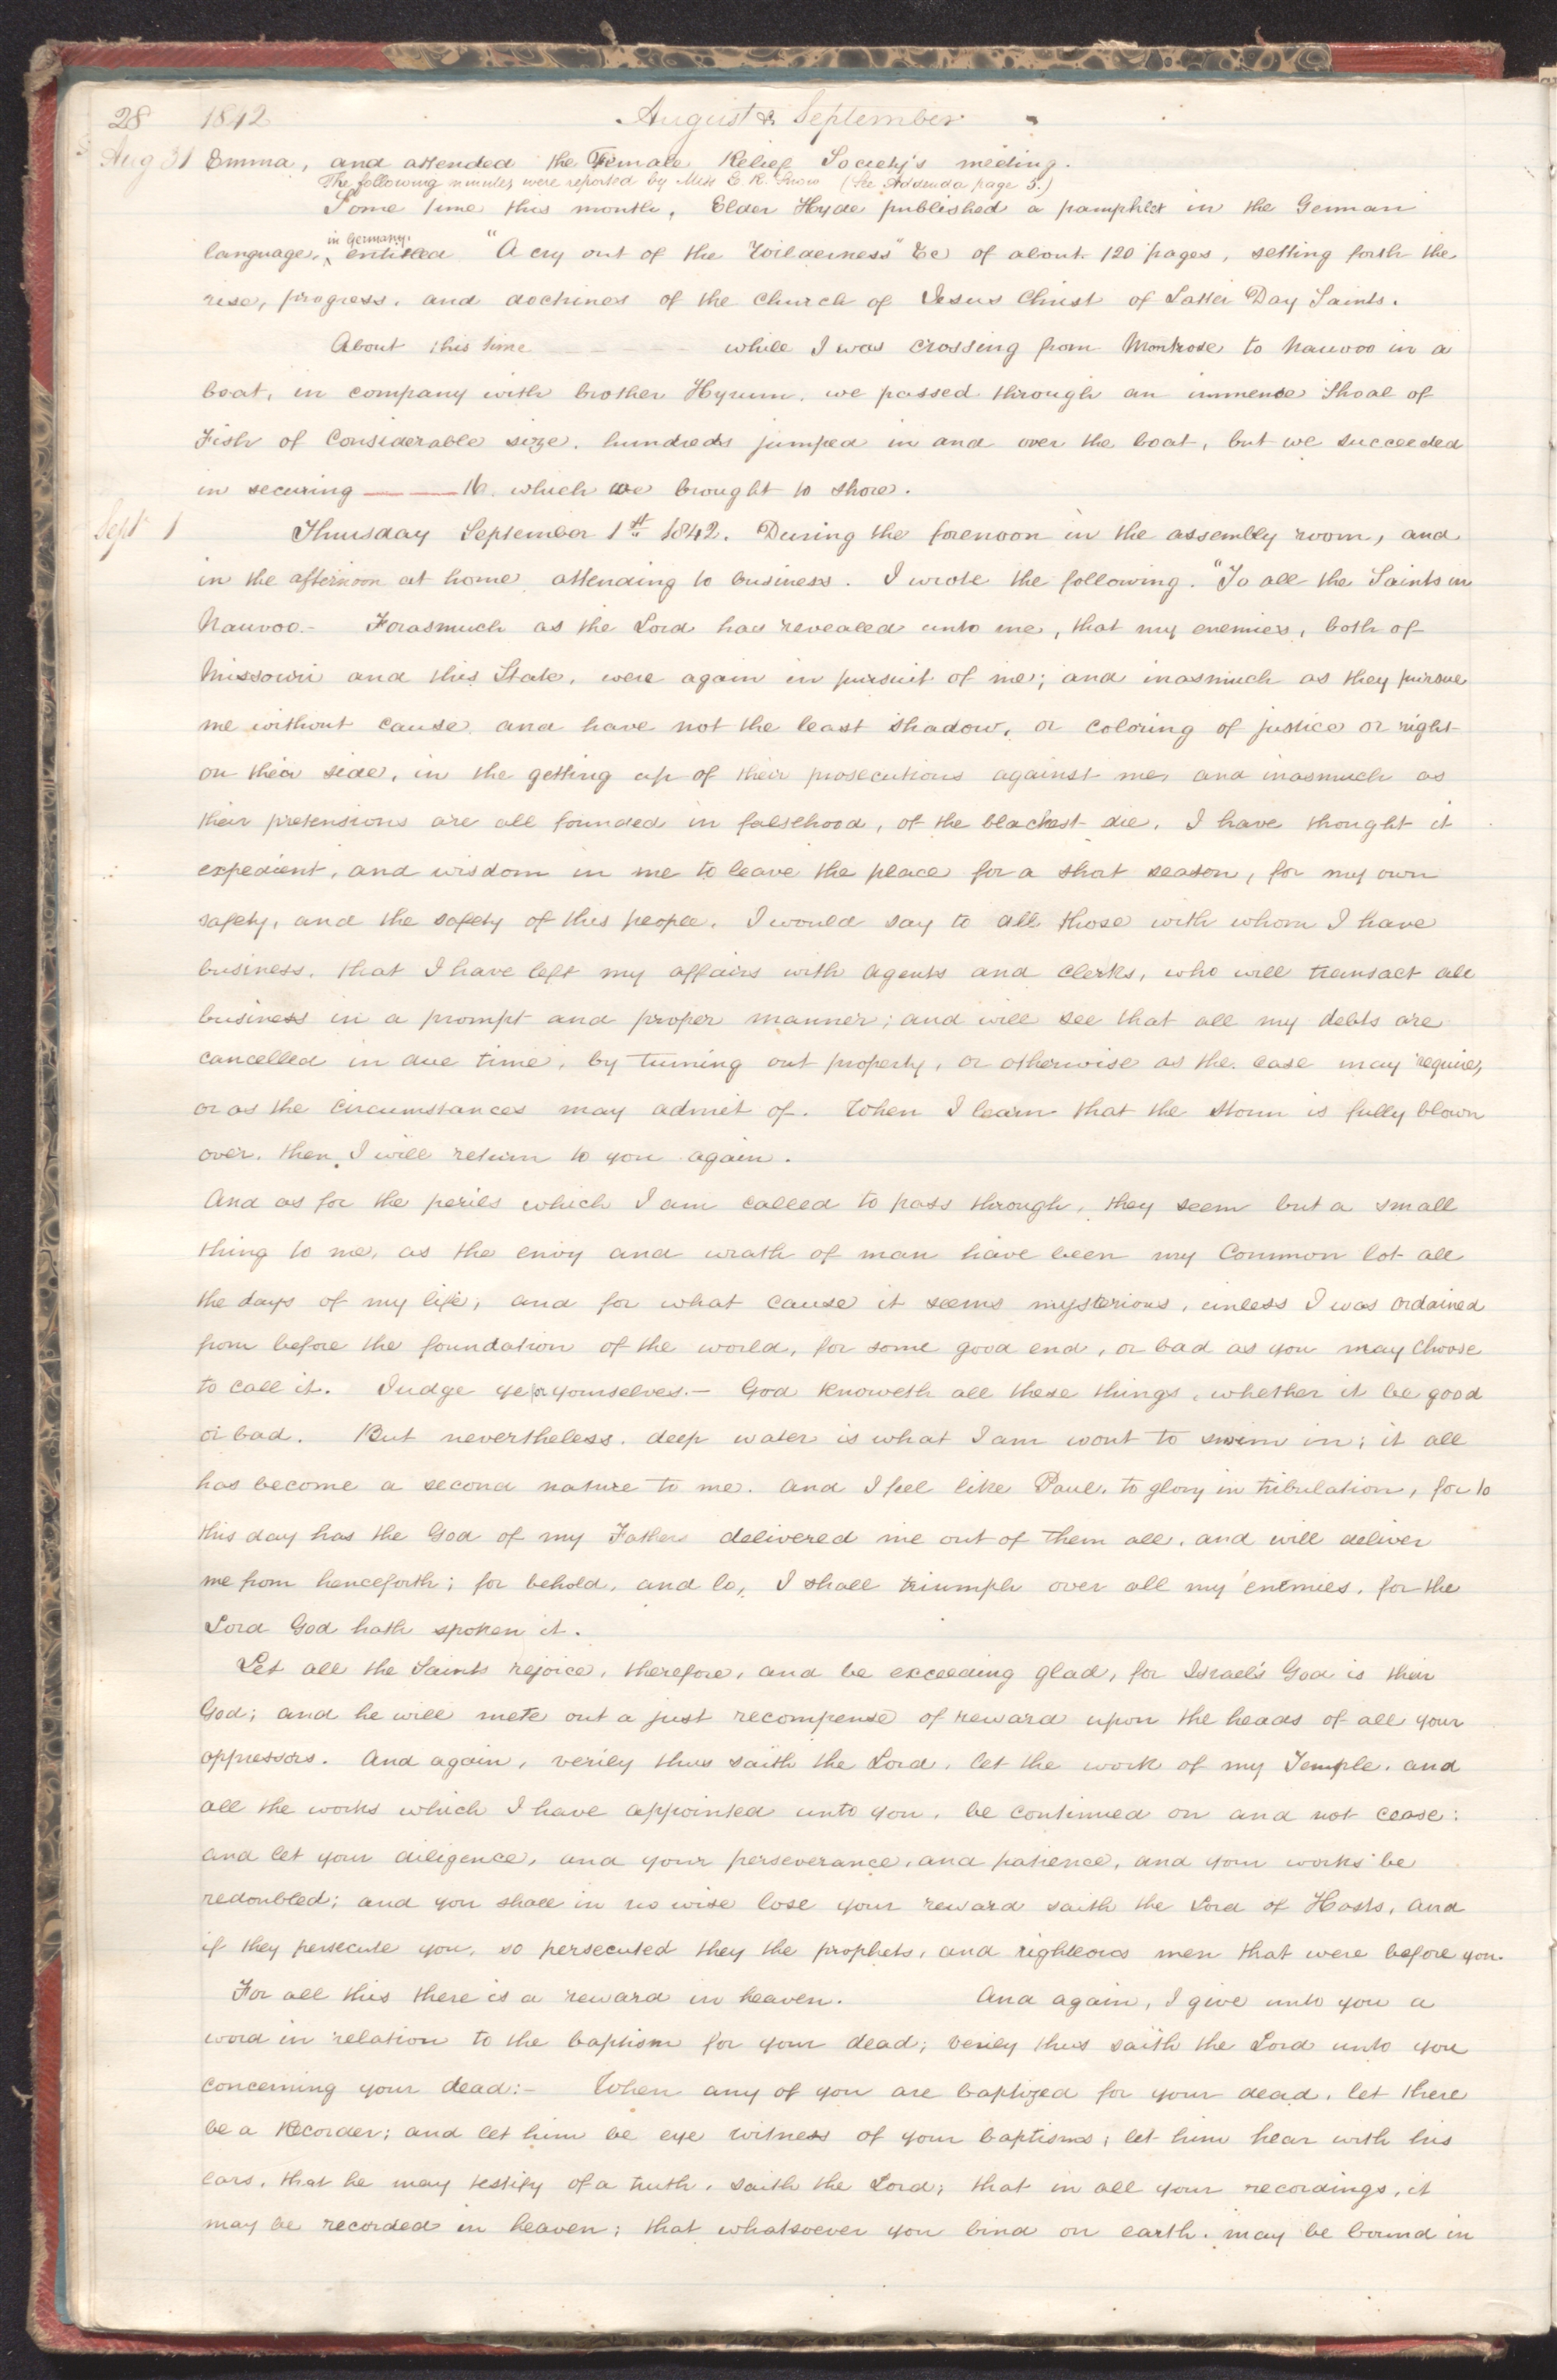 28 1842 August & September
Aug 31 Emma, and attended the Female Relief Society's meeting.
The following minutes were reported by Miss E. R. Snow (See Addenda page 5.)
Some time this month, Elder Hyde published a pamphlet in the German
in Germany,
language, entitled "A cry out of the Wilderness" &c of about 120 pages, setting forth the
rise, progress, and doctrines of the Church of Jesus Christ of Latter Day Saints.
About this time while I was crossing from Montrose to Nauvoo in a
boat, in company with brother Hyrum, we passed through an immense Shoal of
Fish of Considerable size, hundreds jumped in and over the boat, but we succeeded
in securing 16 which we brought to shore.
Sept 1 Thursday September 1st 1842. During the forenoon in the assembly room, and
in the afternoon at home attending to business. I wrote the following. "To all the Saints in
Nauvoo.- Forasmuch as the Lord has revealed unto me, that my enemies, both of
Missouri and this State, were again in pursuit of me; and inasmuch as they pursue
me without cause, and have not the least shadow, or coloring of justice or right
on their side, in the getting up of their prosecutions against me, and inasmuch as
their pretensions are all founded in falsehood, of the blackest die, I have thought it
expedient, and wisdom in me to leave the place for a short season, for my own
safety, and the safety of this people. I would say to all those with whom I have
business, that I have left my affairs with agents and clerks, who will transact all
business in a prompt and proper manner; and will see that all my debts are
cancelled in due time, by turning out property, or otherwise as the case may require,
or as the circumstances may admit of. When I learn that the storm is fully blown
over, then I will return to you again.
And as for the perils which I am called to pass through, they seem but a small
thing to me, as the envy and wrath of man have been my Common lot all
the days of my life; and for what cause it seems mysterious, unless I was ordained
from before the foundation of the world, for some good end, or bad as you may choose
to call it. Judge ye for yourselves.- God knoweth all these things, whether it be good
or bad. But nevertheless, deep water is what I am wont to swim in; it all
has become a second nature to me. And I feel like Paul, to glory in tribulation, for to
this day has the God of my Fathers delivered me out of them all, and will deliver
me from henceforth; for behold, and lo, I shall triumph over all my enemies, for the
Lord God hath spoken it.
Let all the Saints rejoice, therefore, and be exceeding glad, for Israel's God is their
God; and he will mete out a just recompense of reward upon the heads of all your
oppressors. And again, verily thus saith the Lord, let the work of my Temple, and
all the works which I have appointed unto you, be continued on and not cease:
and let your diligence, and your perseverance, and patience, and your works be
redoubled; and you shall in no wise lose your reward saith the Lord of Hosts, and
if they persecute you, so persecuted they the prophets, and righteous men that were before you.
For all this there is a reward in heaven. And again, I give unto you a
word in relation to the baptism for your dead; verily thus saith the Lord unto you
concerning your dead:- When any of you are baptized for your dead, let there
be a Recorder; and let him be eye witness of your baptisms; let him hear with his
ears, that he may testify of a truth, saith the Lord; that in all your recordings, it
may be recorded in heaven; that whatsoever you bind on earth, may be bound in